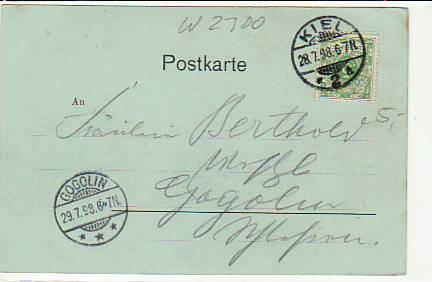 W 2700
KIEL
28.7.98.6-7N.
2
Postkarte
An
Fräulein Berthold
Gogolin
GOGOLIN
29.7.98.6-7N.